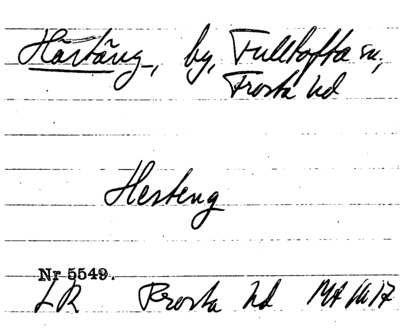 Härtäng, by, Fulltofta sn,
Frosta hd
Herteng
Nr 5549.
LR Frosta hd MA